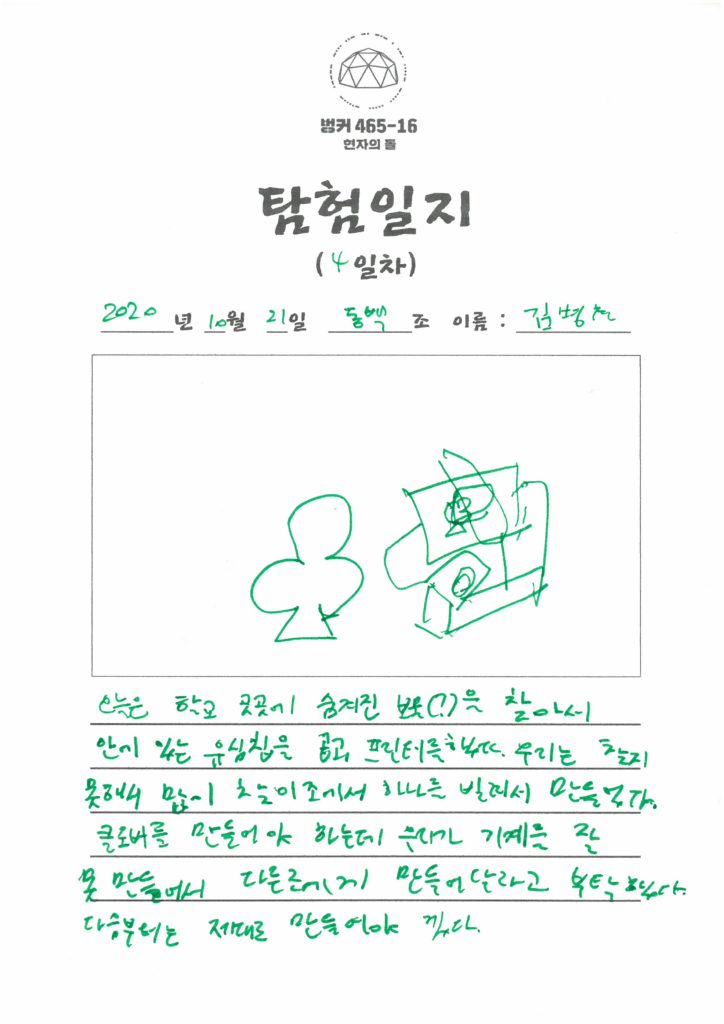 벙커 465-16
현자의 돌
탐험일지
(4일차)
2020년 10월 21일 동백조 이름 : 김병천
오늘은 학교 곳곳에 숨겨진 보물(?)을 찾아서
안에 있는 유심칩을 꼽고 프린터를 했다. 우리는 찾지
못해서 많이 찾은 조에서 하나를 빌려서 만들었다.
클로버를 만들어야 하는데 우리가 기계를 잘
못 만들어서 다른조에게 만들어달라고 부탁했다.
다음부터는 제대로 만들어야 겠다.